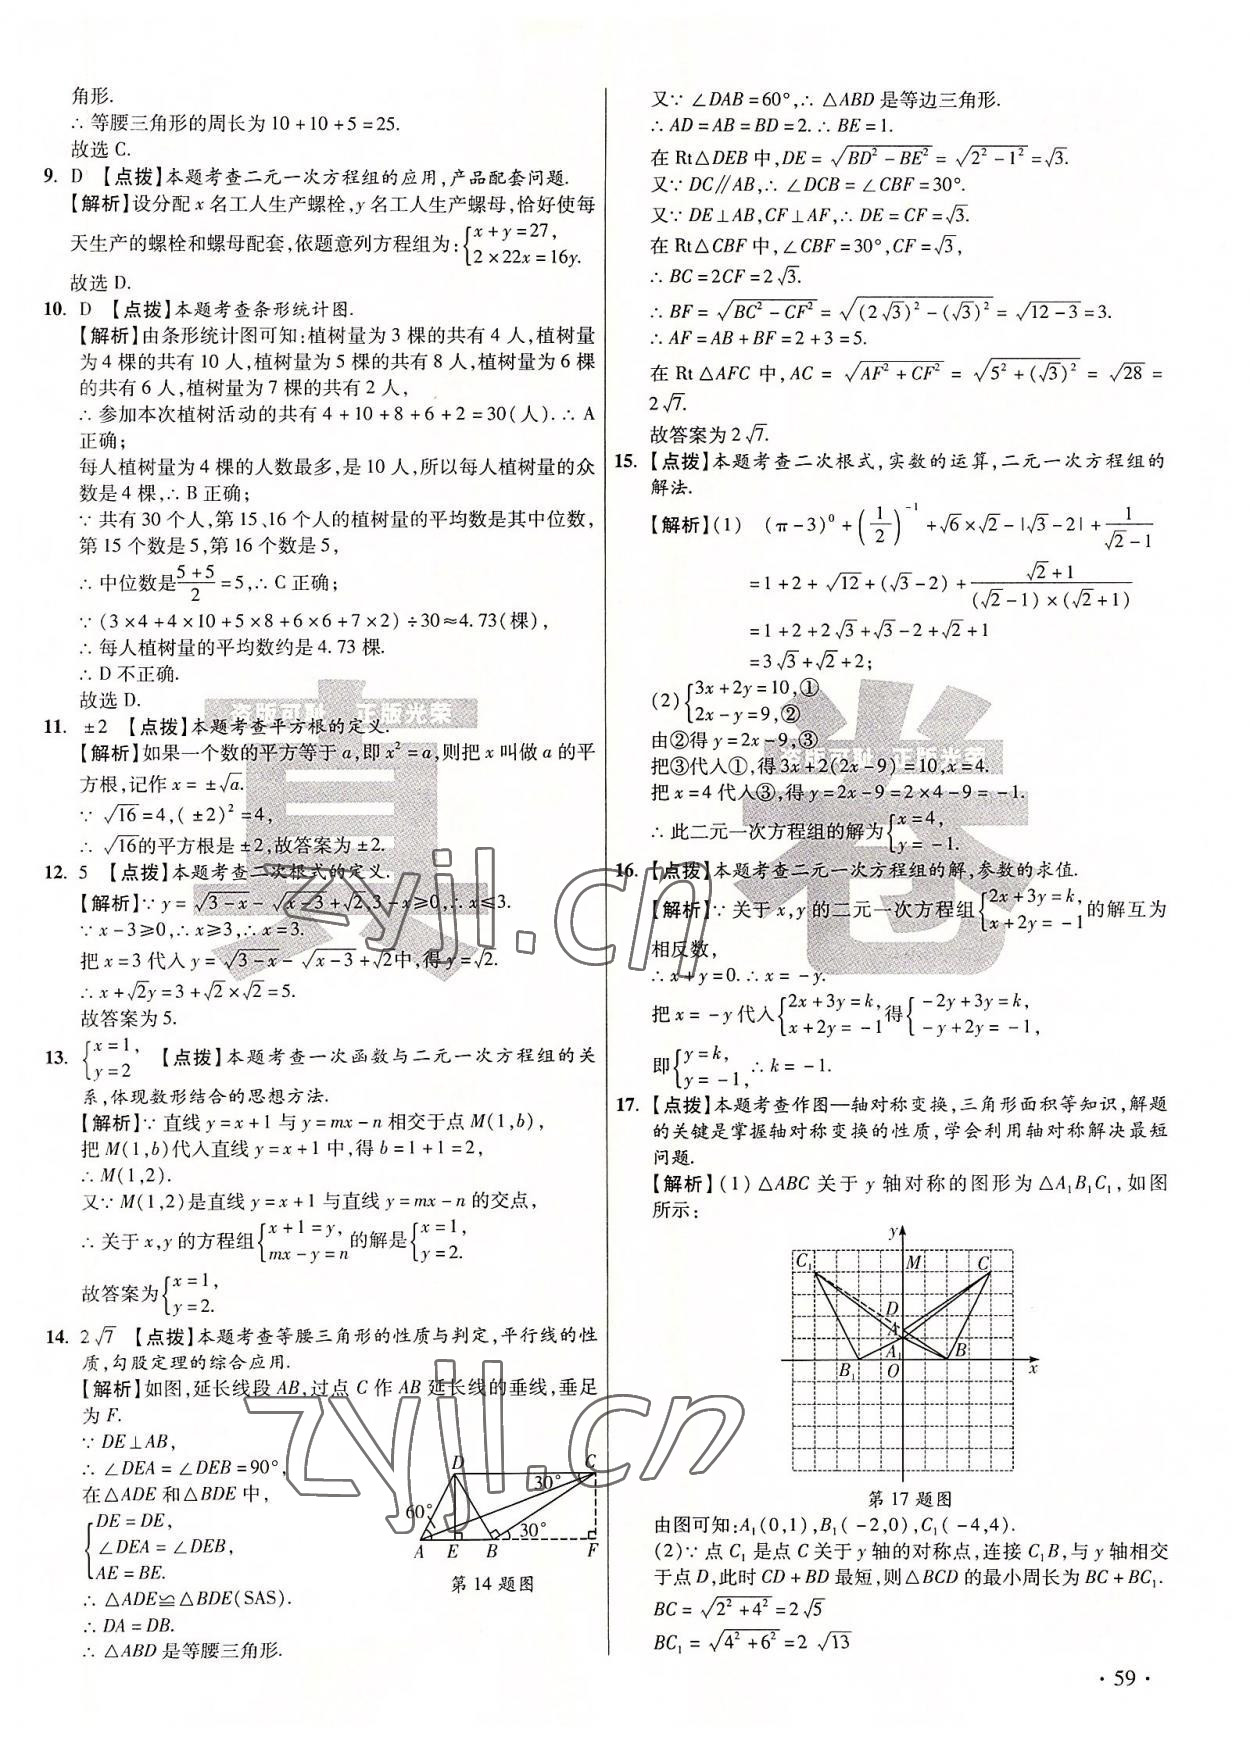 角形.
∴ 等腰三角形的周长为 10 + 10 + 5 = 25.
故选 C.
9. D 【点拨】本题考查二元一次方程组的应用,产品配套问题.
【解析】设分配 x 名工人生产螺栓,y 名工人生产螺母,恰好使每
天生产的螺栓和螺母配套,依题意列方程组为:{x + y = 27, 2 × 22x = 16y.
故选 D.
10. D 【点拨】本题考查条形统计图.
【解析】由条形统计图可知:植树量为 3 棵的共有 4 人,植树量
为 4 棵的共有 10 人,植树量为 5 棵的共有 8 人,植树量为 6 棵
的共有 6 人,植树量为 7 棵的共有 2 人,
∴ 参加本次植树活动的共有 4 + 10 + 8 + 6 + 2 = 30(人). ∴ A
正确;
每人植树量为 4 棵的人数最多,是 10 人,所以每人植树量的众
数是 4 棵,∴ B 正确;
∵ 共有 30 个人,第 15、16 个人的植树量的平均数是其中位数,
第 15 个数是 5,第 16 个数是 5,
∴ 中位数是 (5+5)/2 = 5,∴ C 正确;
∵ (3 × 4 + 4 × 10 + 5 × 8 + 6 × 6 + 7 × 2) ÷ 30 ≈ 4. 73(棵),
∴ 每人植树量的平均数约是 4. 73 棵.
∴ D 不正确.
故选 D.
11. ±2 【点拨】本题考查平方根的定义.
【解析】如果一个数的平方等于 a,即 x² = a,则把 x 叫做 a 的平
方根,记作 x = ±√a.
∵ √16 = 4,(±2)² = 4,
∴ √16的平方根是 ±2,故答案为 ±2.
12. 5 【点拨】本题考查二次根式的定义.
【解析】∵ y = √(3 - x) - √(x - 3) + √2,3 - x ≥ 0,∴ x ≤ 3.
∵ x - 3 ≥ 0,∴ x ≥ 3,∴ x = 3.
把 x = 3 代入 y = √(3 - x) - √(x - 3) + √2中,得 y = √2.
∴ x + √2y = 3 + √2 × √2 = 5.
故答案为 5.
13. {x = 1, y = 2 【点拨】本题考查一次函数与二元一次方程组的关
系,体现数形结合的思想方法.
【解析】∵ 直线 y = x + 1 与 y = mx - n 相交于点 M(1,b),
把 M(1,b)代入直线 y = x + 1 中,得 b = 1 + 1 = 2,
∴ M(1,2).
又∵ M(1,2)是直线 y = x + 1 与直线 y = mx - n 的交点,
∴ 关于 x,y 的方程组{x + 1 = y, mx - y = n的解是{x = 1, y = 2.
故答案为{x = 1, y = 2.
14. 2√7 【点拨】本题考查等腰三角形的性质与判定,平行线的性
质,勾股定理的综合应用.
【解析】如图,延长线段 AB,过点 C 作 AB 延长线的垂线,垂足
为 F.
∵ DE⊥AB,
∴ ∠DEA = ∠DEB = 90°,
在△ADE 和△BDE 中,
{DE = DE,
∠DEA = ∠DEB,
AE = BE.
∴ △ADE≌△BDE(SAS).
∴ DA = DB.
∴ △ABD 是等腰三角形.
D C
30°
60°
30°
A E B F
第 14 题图
又∵ ∠DAB = 60°,∴ △ABD 是等边三角形.
∴ AD = AB = BD = 2. ∴ BE = 1.
在 Rt△DEB 中,DE = √(BD² - BE²) = √(2² - 1²) = √3.
又∵ DC∥AB,∴ ∠DCB = ∠CBF = 30°.
又∵ DE⊥AB,CF⊥AF,∴ DE = CF = √3.
在 Rt△CBF 中,∠CBF = 30°,CF = √3,
∴ BC = 2CF = 2√3.
∴ BF = √(BC² - CF²) = √((2√3)² - (√3)²) = √(12 - 3) = 3.
∴ AF = AB + BF = 2 + 3 = 5.
在 Rt△AFC 中,AC = √(AF² + CF²) = √(5² + (√3)²) = √28 =
2√7.
故答案为 2√7.
15. 【点拨】本题考查二次根式,实数的运算,二元一次方程组的
解法.
【解析】(1) (π - 3)⁰ + (1/2)⁻¹ + √6 × √2 - |√3 - 2| + 1/(√2 - 1)
= 1 + 2 + √12 + (√3 - 2) + (√2 + 1)/((√2 - 1) × (√2 + 1))
= 1 + 2 + 2√3 + √3 - 2 + √2 + 1
= 3√3 + √2 + 2;
(2){3x + 2y = 10,① 2x - y = 9,②
由②得 y = 2x - 9,③
把③代入①,得 3x + 2(2x - 9) = 10,x = 4.
把 x = 4 代入③,得 y = 2x - 9 = 2 × 4 - 9 = -1.
∴ 此二元一次方程组的解为{x = 4, y = -1.
16. 【点拨】本题考查二元一次方程组的解,参数的求值.
【解析】∵ 关于 x,y 的二元一次方程组{2x + 3y = k, x + 2y = -1的解互为
相反数,
∴ x + y = 0. ∴ x = -y.
把 x = -y 代入{2x + 3y = k, x + 2y = -1得{-2y + 3y = k, -y + 2y = -1,
即{y = k, y = -1,∴ k = -1.
17. 【点拨】本题考查作图—轴对称变换,三角形面积等知识,解题
的关键是掌握轴对称变换的性质,学会利用轴对称解决最短
问题.
【解析】(1)△ABC 关于 y 轴对称的图形为△A₁B₁C₁,如图
所示:
y
C₁ M C
D
A
A₁
B₁ O B x
第 17 题图
由图可知:A₁(0,1),B₁(-2,0),C₁(-4,4).
(2)∵ 点 C₁ 是点 C 关于 y 轴的对称点,连接 C₁B,与 y 轴相交
于点 D,此时 CD + BD 最短,则△BCD 的最小周长为 BC + BC₁.
BC = √(2² + 4²) = 2√5
BC₁ = √(4² + 6²) = 2 √13
· 59 ·
真
盗版可耻 正版光荣
卷
盗版可耻 正版光荣
zyjl.cn
zyjl.cn